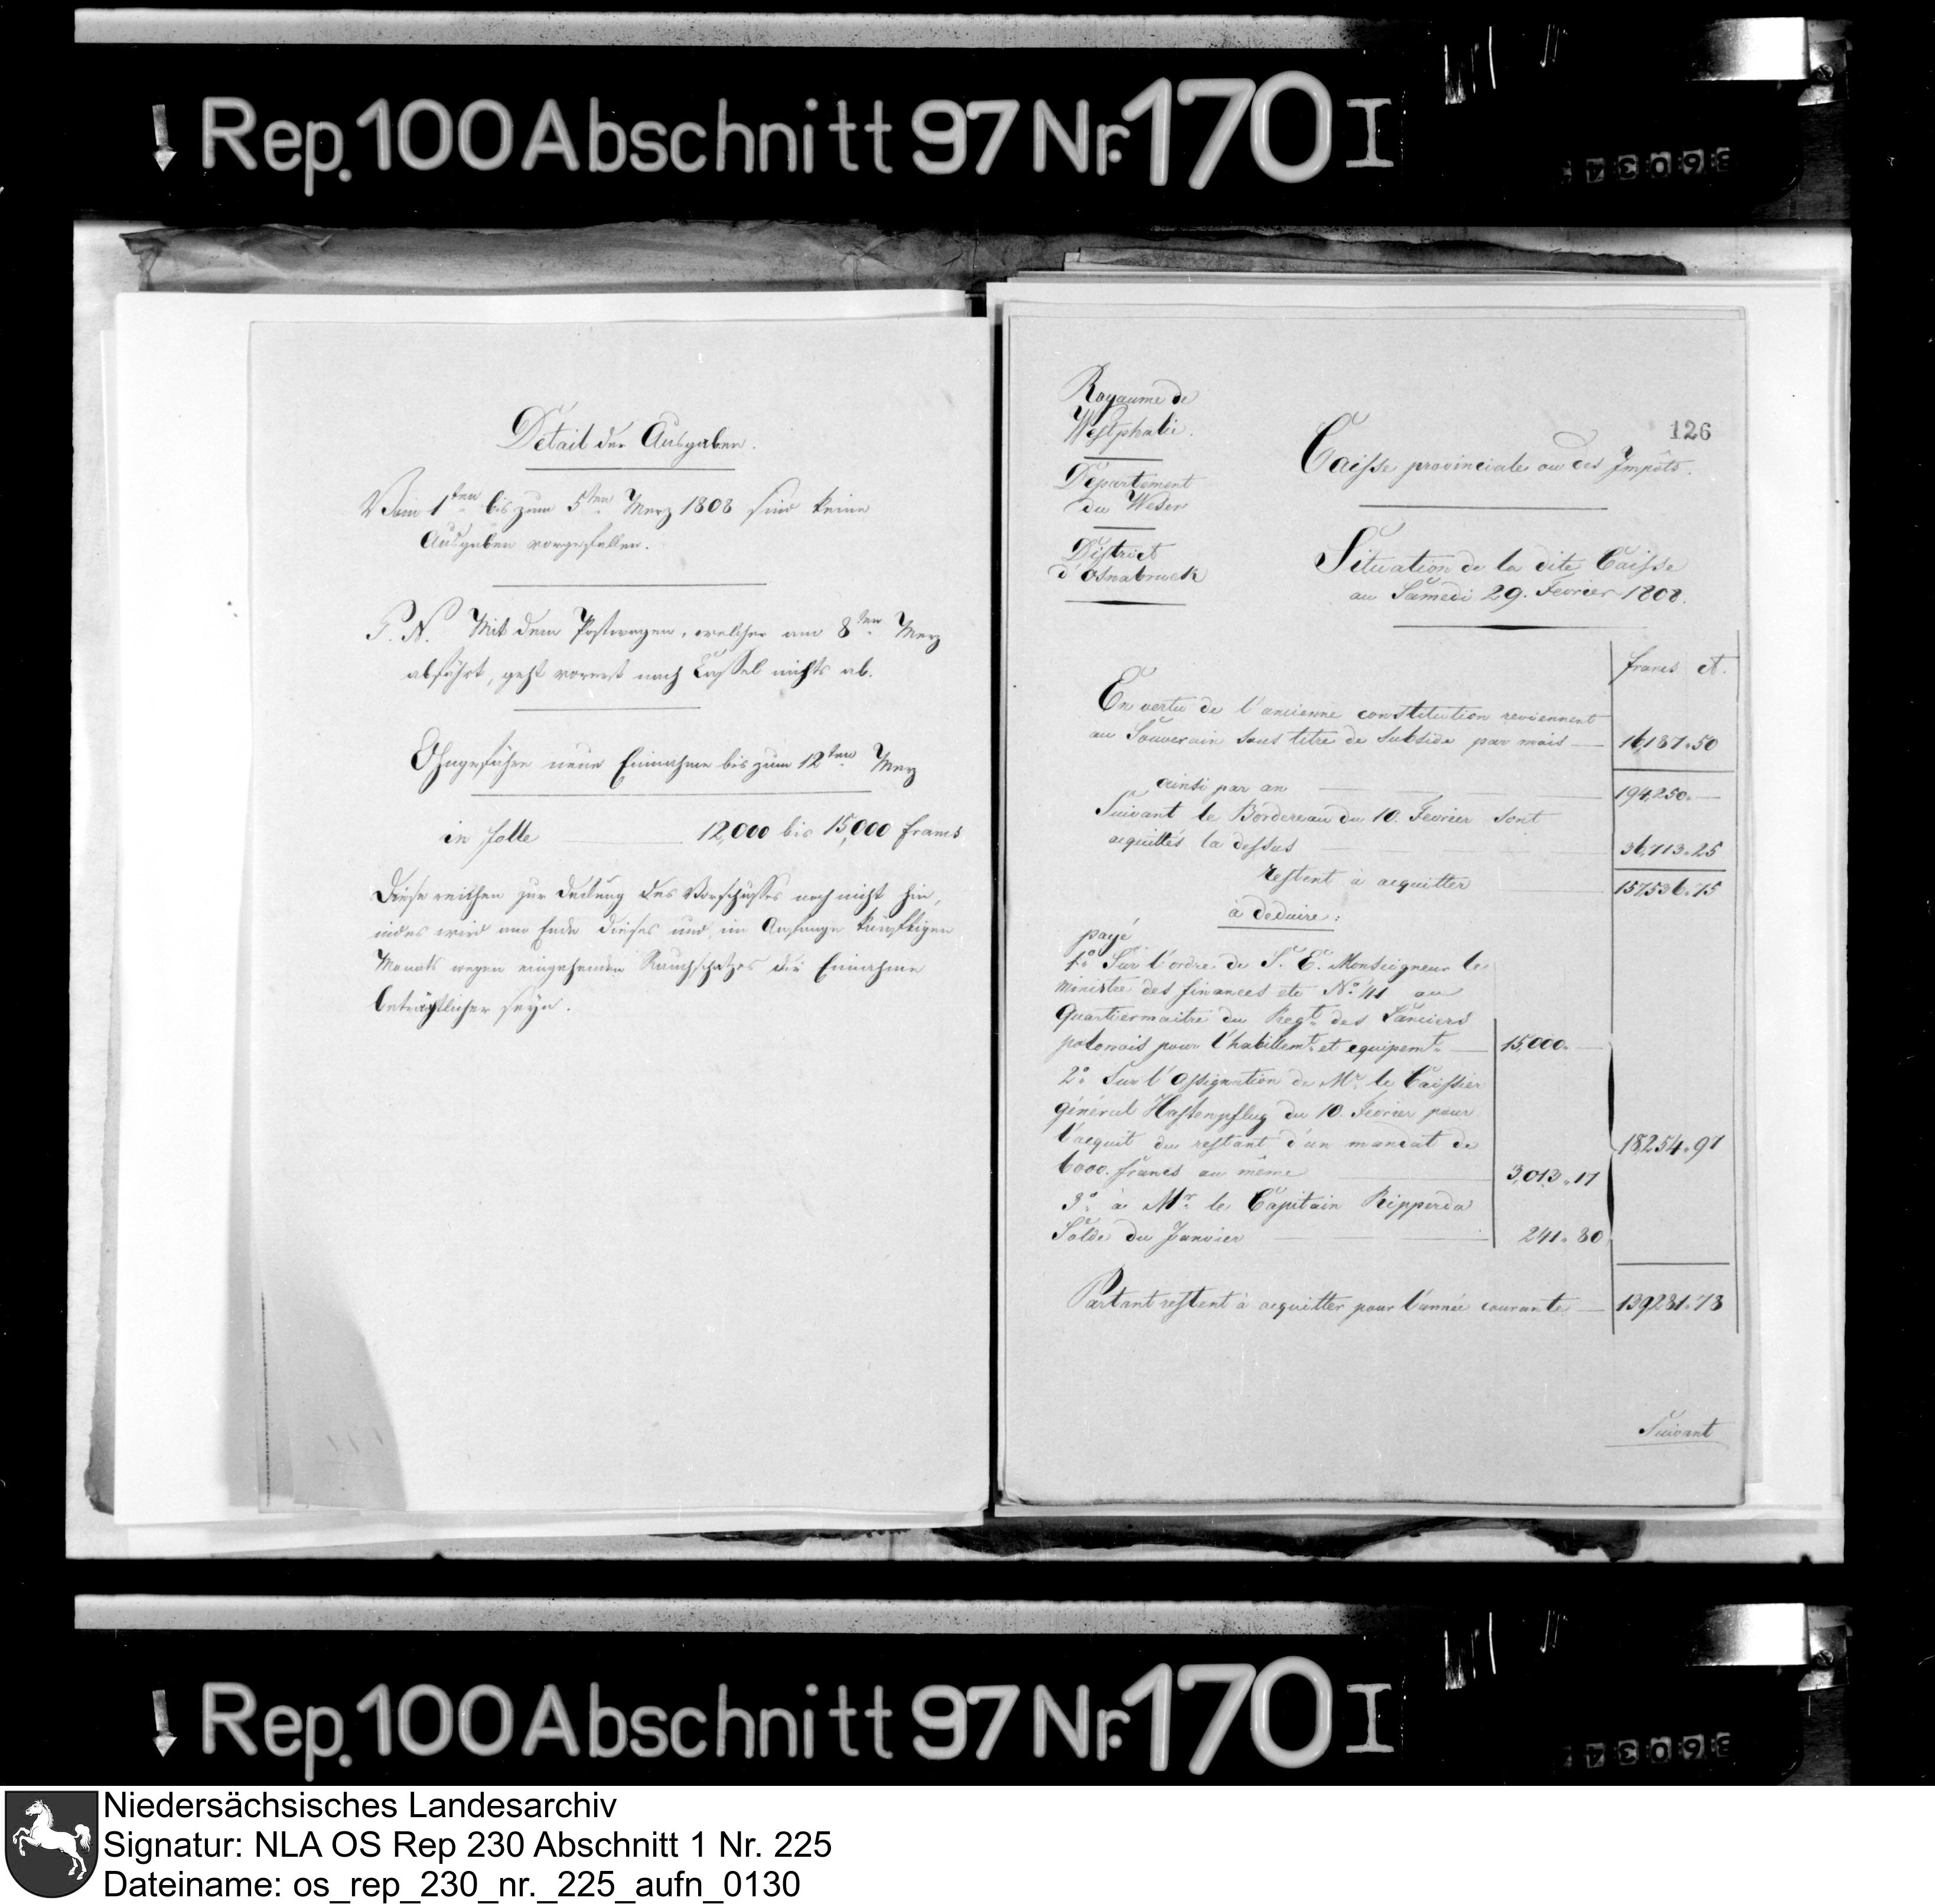 Rep. 100 Abschnitt 97 Nr. 170 I
36034
Détail der Ausgaben.
Vom 1ten bis zum 5ten Merz 1808 sind keine
Ausgaben vorgefallen.
P. N. Mit dem Postwagen, welcher am 8ten Merz
abfährt, geht vorerst nach Cassel nichts ab.
Ohngefähre neue Einnahme bis zum 12ten Merz
in solle 12,000 bis 15,000 francs
Diese reichen zur Deckung des Vorschusses noch nicht hin,
indes wird am Ende dieses und im Anfange künftigen
Monats wegen eingehenden Rauchschatzes die Einnahme
beträchtlicher seyn.
126
Royaume de
Westphalie.
Département
du Weser
District
d'Osnabruck
Caisse provinciale ou des Impôts.
Situation de la dite Caisse
au Samedi 29. Fevrier 1808.
francs ct.
En vertu de l'ancienne constitution reviennent
au Souverain sous titre de subside par mois 16,187.50
ainsi par an 194,250.
Suivant le Bordereau du 10. Fevrier sont
acquittés la dessus 36,713.25
restent à acquitter 157,536.75
à deduire:
payé
1° Sur l'ordre de S. E. Monseigneur le
Ministre des finances etc No. 41 au
Quartiermaitre du Regt. des Lanciers
polonois pour l'habillemt. et equipemt. 15,000.
2° Sur l'assignation de Mr. le Caissier
général Hastenpflug du 10. Fevrier pour
l'acquit du restant d'un mandat de
6000. francs au même 3,013.17
18,254.97
3° à Mr. le Capitain Ripperda
Solde du Janvier 241.80
Partant restent à acquitter pour l'année courante 139,281.78
Suivant
Rep. 100 Abschnitt 97 Nr. 170 I
36034
Niedersächsisches Landesarchiv
Signatur: NLA OS Rep 230 Abschnitt 1 Nr. 225
Dateiname: os_rep_230_nr._225_aufn_0130